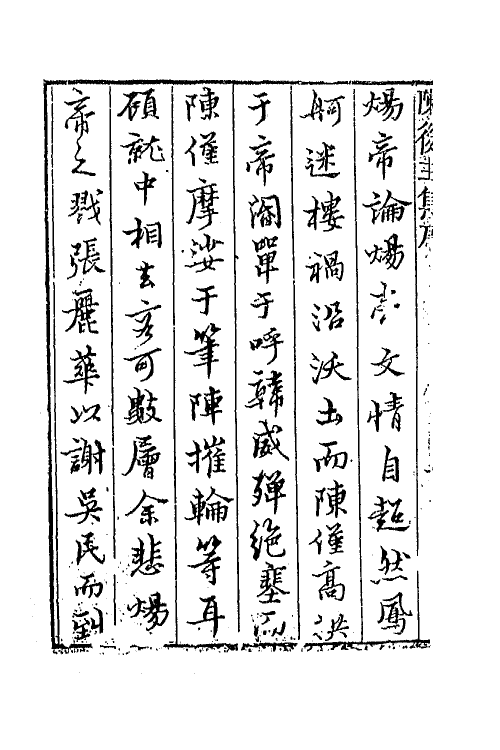 陳後主集序
煬帝論煬帝文情自超然鳳
舸迷樓禍沿沃土而陳僅高洪
于帝閽單于呼韓威殫絶塞而
陳僅摩娑于筆陣摧輪等耳
顧就中相去亥可數層余悲煬
帝之戮張麗華以謝吳民而到